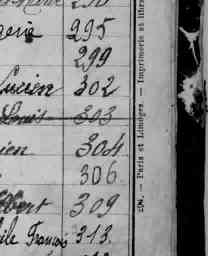 295
299
Lucien 302
Louis 303
ien 304
306
lbert 309
ile François 313
298. — Paris et Limoges. — Imprimerie et libra